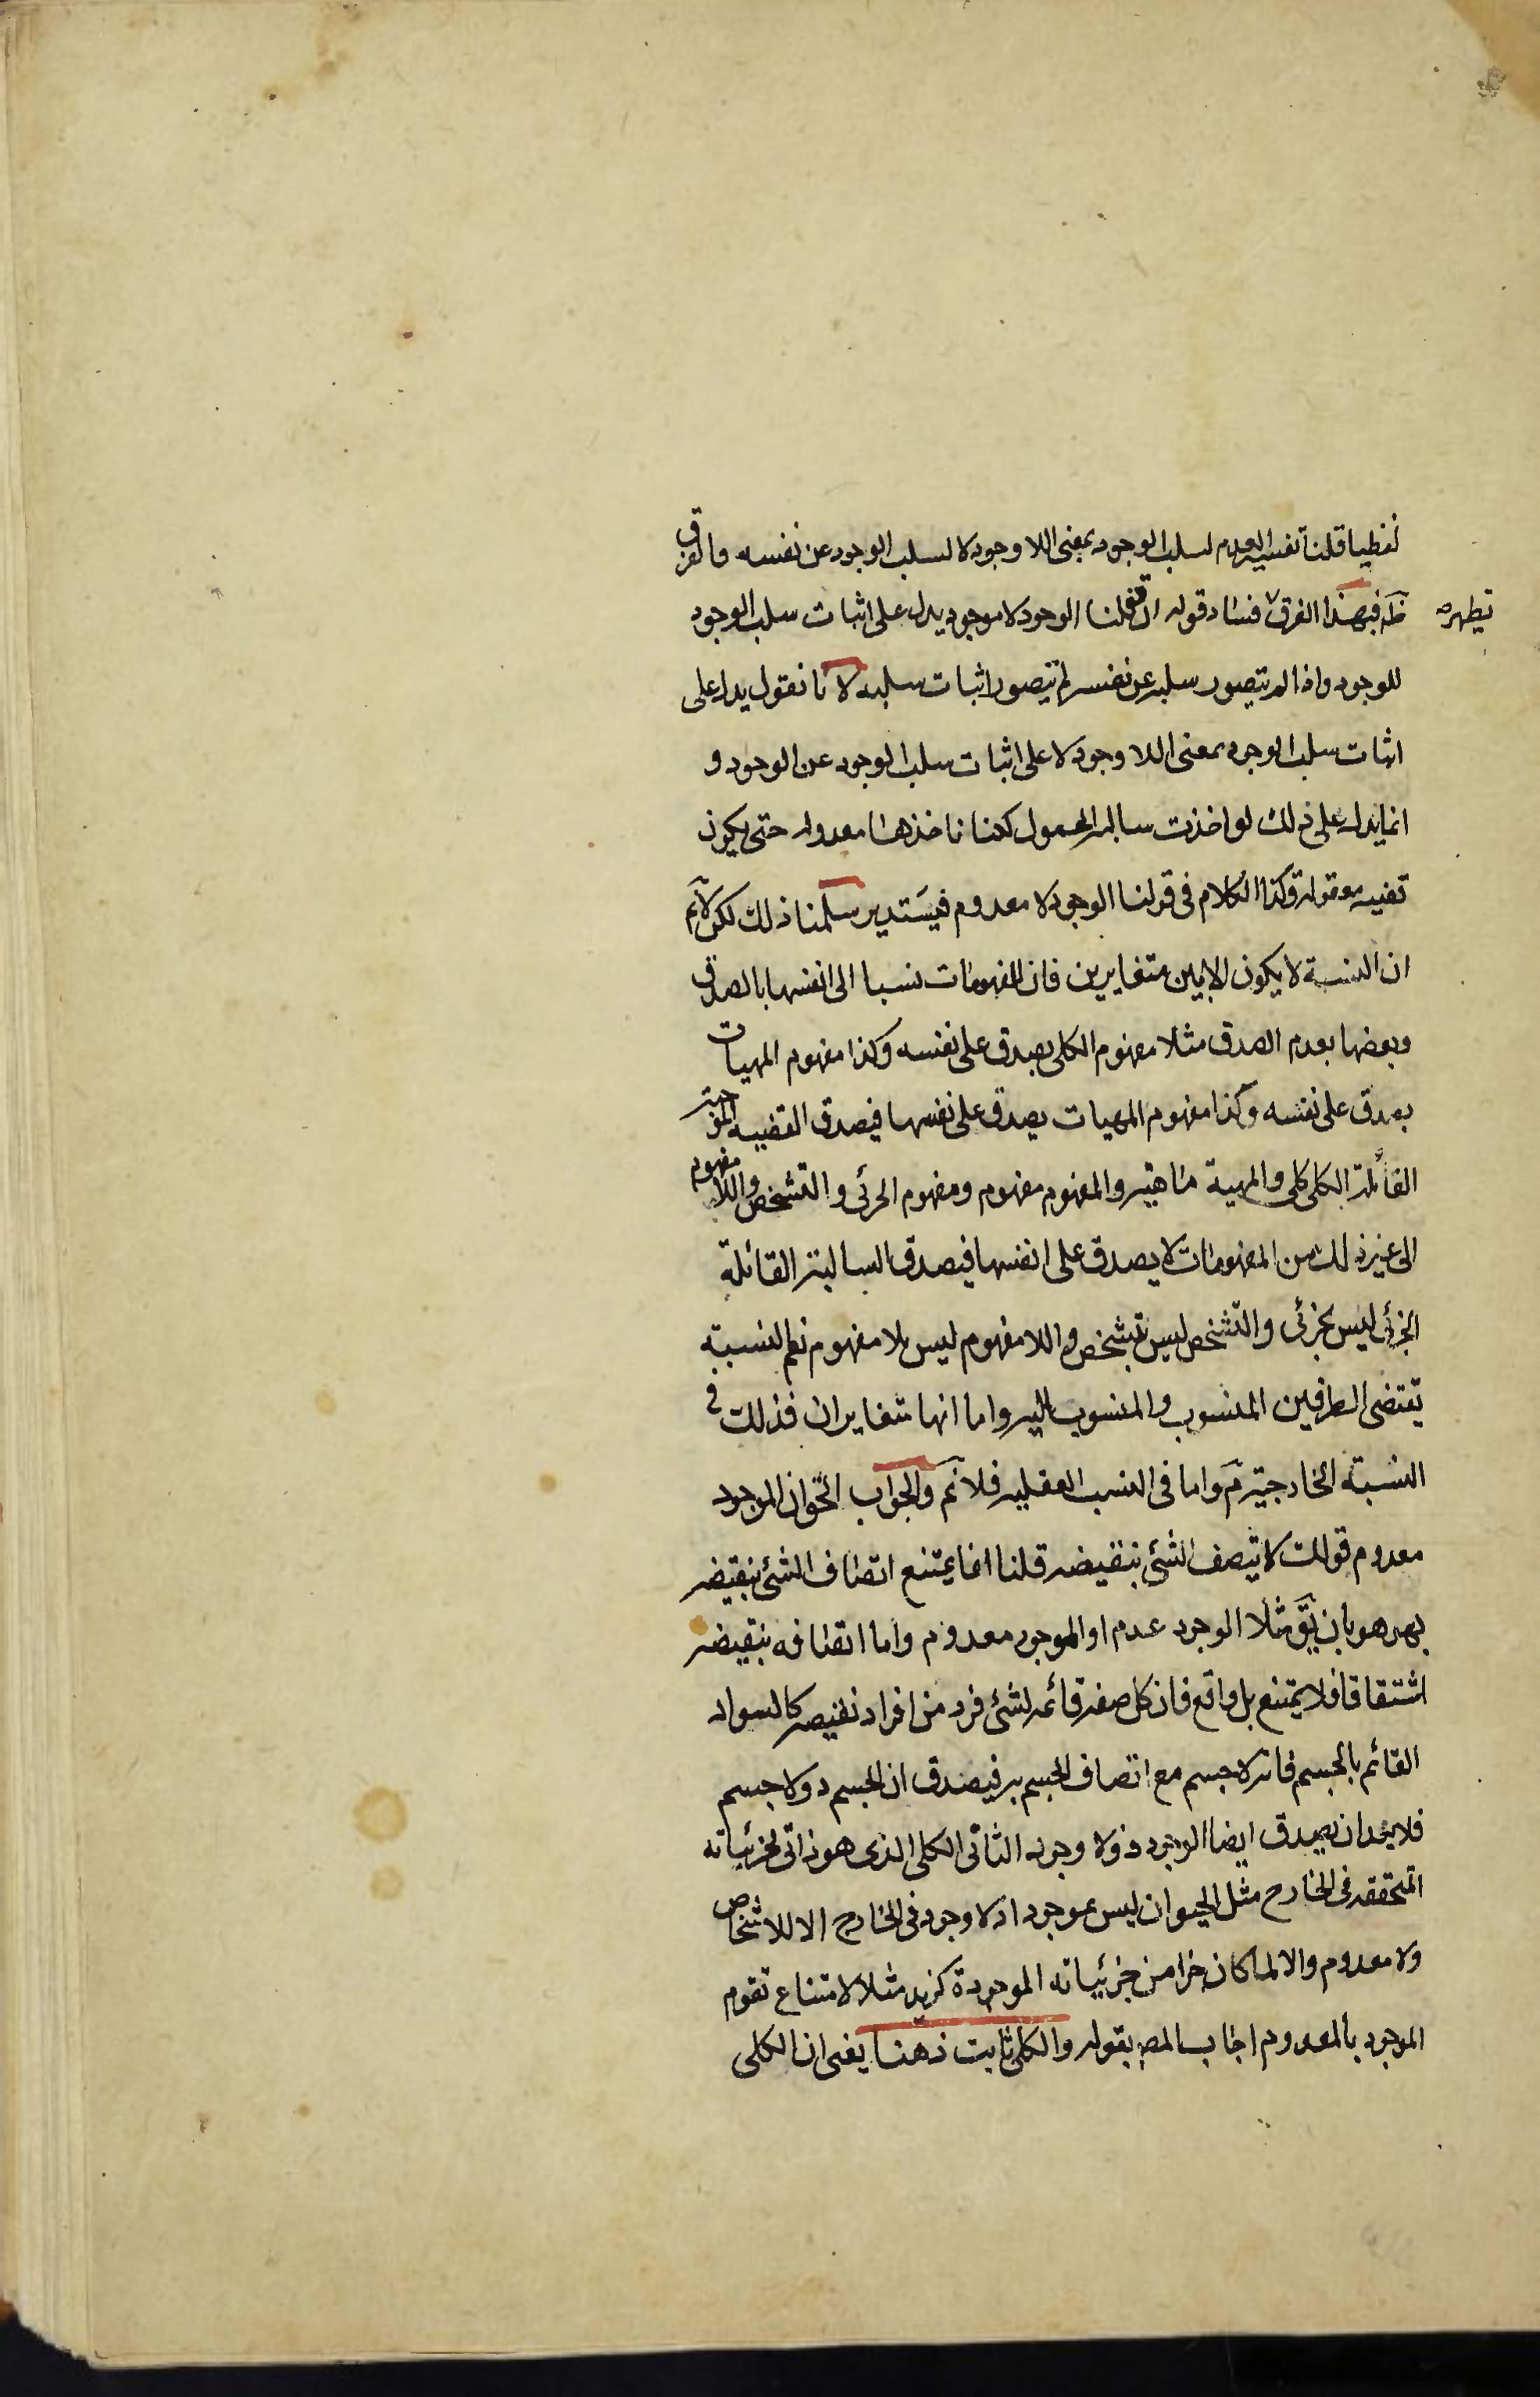 لفظيا قلنا تفسير العدم لسلب الوجود بمعنى اللاوجود لا لسلب الوجود عن نفسه والفرق
ظَ فبهذا الفرق فساد قوله ان قولنا الوجود لا موجود يدل على اثبات سلب الوجود
يظهر
للوجود واذا لم يتصور سلبه عن نفسه لم يتصور اثبات سلبه لانا نقول يدل على
اثبات سلب الوجود بمعنى اللاوجود لا على اثبات سلب الوجود عن الوجود و
انما يدل على ذلك لو اخذت سالبة المحمول لكننا ناخذها معدولة حتى يكون
نفسه معقولة وكذا الكلام فى قولنا الوجود لا معدوم فيستدير سلمنا ذلك لكن لانم
ان النسبة لا يكون الا بين متغايرين فان للمفهومات نسبا الى انفسها بالصدق
وبعضها بعدم الصدق مثلا مفهوم الكلى يصدق على نفسه وكذا مفهوم المهيات
يصدق على نفسه وكذا مفهوم المهيات يصدق على نفسها فيصدق القضيه الموجبة
القائلة الكلى كلى والمهية ماهية والمفهوم مفهوم ومفهوم الجزئى والتشخص واللامفهوم
الى غير ذلك من المفهومات لا يصدق على انفسها فيصدق السالبة القائلة
الجزئى ليس بجزئى والتشخص ليس بتشخص واللامفهوم ليس بلامفهوم نعم النسبة
تقتضى الطرفين المنسوب والمنسوب اليه واما انها متغايران فذلك فى
النسبة الخارجية مَ واما فى النسب العقلية فلانم والجواب الحق ان الموجود
معدوم قولك لا يتصف الشئ بنقيضه قلنا انما يمتنع اتصاف الشئ بنقيضه
بهو هو بان يَق مثلا الوجود عدم او الموجود معدوم واما اتصافه بنقيضه
اشتقاقا فلا يمتنع بل واقع فان كل صفة قائمة لشئ فرد من افراد نقيضه كالسواد
القائم بالجسم فانه لا جسم مع اتصاف الجسم به فيصدق ان الجسم ذو لا جسم
فلا يبعد ان يصدق ايضا الوجود ذو لا وجود الثانى الكلى الذى هو ذاتى لجزئياته
المتحققه فى الخارج مثل الحيوان ليس بموجود اذ لا وجود فى الخارج الا للاشخاص
ولا معدوم والا لما كان جزا من جزئياته الموجودة كزيد مثلا لامتناع تقوم
الموجود بالمعدوم اجاب المص بقوله والكلى ثابت ذهنا يعنى ان الكلى